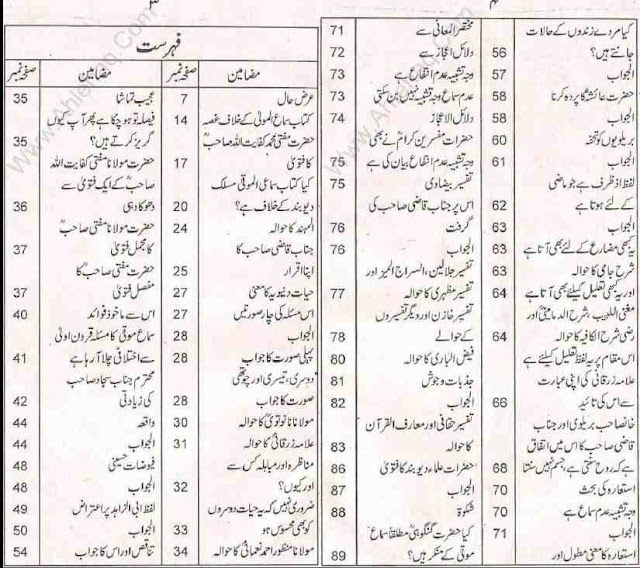 ۳
فہرست
مضامین صفحہ نمبر
عرض حال 7
کتاب سماع الموتی کے خلاف غصہ 14
حضرت مفتی محمد کفایت اللہ صاحبؒ
کا فتویٰ 17
کیا کتاب سماع الموتی مسلک
دیوبند کے خلاف ہے؟ 20
المہند کا حوالہ 24
جناب قاضی صاحب کا
اپنا اقرار 25
حیات دنیویہ کا معنی 27
اس مسئلہ کی چار صورتیں 27
الجواب 28
پہلی صورت کا جواب 28
دوسری، تیسری اور چوتھی
صورت کا جواب 28
مولانا نانوتویؒ کا حوالہ 30
علامہ زرقانیؒ کا حوالہ 31
مناظرہ اور مباہلہ کس سے
اور کیوں؟ 32
ضروری نہیں کہ یہ حیات دوسروں
کو بھی محسوس ہو 33
مولانا منظور احمد نعمانیؒ کا حوالہ 34
مضامین صفحہ نمبر
عجیب تماشا 35
فیصلہ تو ہو چکا ہے پھر آپ کیوں
گریز کرتے ہیں؟ 35
حضرت مولانا مفتی کفایت اللہ
صاحبؒ کے ایک فتویٰ سے
دھوکا دہی 36
حضرت مولانا مفتی صاحبؒ
کا مجمل فتویٰ 37
حضرت مفتی صاحبؒ کا
مفصل فتویٰ 37
اس سے ماخوذ فوائد 40
سماع موتی کا مسئلہ قرون اولیٰ
سے اختلافی چلا آ رہا ہے 41
محترم جناب سجاد صاحب
کی زیادتی 42
واقعہ 44
الجواب 44
فیوضات حسینی 48
الجواب 48
لفظ ابی الزاہد پر اعتراض 49
الجواب 50
تناقض اور اس کا جواب 54
۴
کیا مردے زندوں کے حالات
جانتے ہیں؟ 56
الجواب 57
حضرت عائشہؓ کا پردہ کرنا 58
الجواب 58
بریلویوں کو تحفہ 60
الجواب 61
لفظ اذ ظرف ہے جو ماضی
کے لئے ہوتا ہے 62
الجواب 63
یہ کبھی مضارع کے لئے بھی آتا ہے 63
شرح جامی کا حوالہ 63
اور یہ کبھی تعلیل کیلئے بھی آتا ہے 64
مغنی اللبیب، شرح الدمامینی اور
رضی شرح الکافیہ کا حوالہ 64
اس مقام پر یہ لفظ تعلیل کیلئے ہے
علامہ زرقانی کی اپنی عبارت
سے اس کی تائید 66
خانصاحب بریلوی اور جناب
قاضی صاحب کا اس میں اتفاق
ہے کہ روح سنتی ہے، جسم نہیں سنتا 68
استعارہ کی بحث 70
وجہ تشبیہ عدم سماع ہے 70
الجواب 71
استعارہ کا معنی مطول اور
مختصر المعانی سے 71
دلائل اعجاز سے 72
وجہ تشبیہ عدم انتفاع ہے 73
عدم سماع وجہ تشبیہ نہیں بن سکتی 73
دلائل الاعجاز 74
حضرات مفسرین کرامؒ نے بھی
وجہ تشبیہ عدم انتفاع بیان کی ہے 75
تفسیر بیضاوی 75
اس پر جناب قاضی صاحب کی
گرفت 76
الجواب 76
تفسیر جلالین، السراج المنیر اور
تفسیر مظہری کا حوالہ 77
تفسیر خازن اور دیگر تفسیروں
کے حوالے 78
فیض الباری کا حوالہ 80
جذبات و جوش 81
الجواب 82
تفسیر حقانی اور معارف القرآن
کا حوالہ 83
حضرات علماء دیوبند کا فتویٰ 86
الجواب 87
شکوہ 88
کیا حضرت گنگوہیؒ مطلقا سماع
موتی کے منکر ہیں؟ 89
www.Ahlehaq.Com
www.Ahlehaq.Com